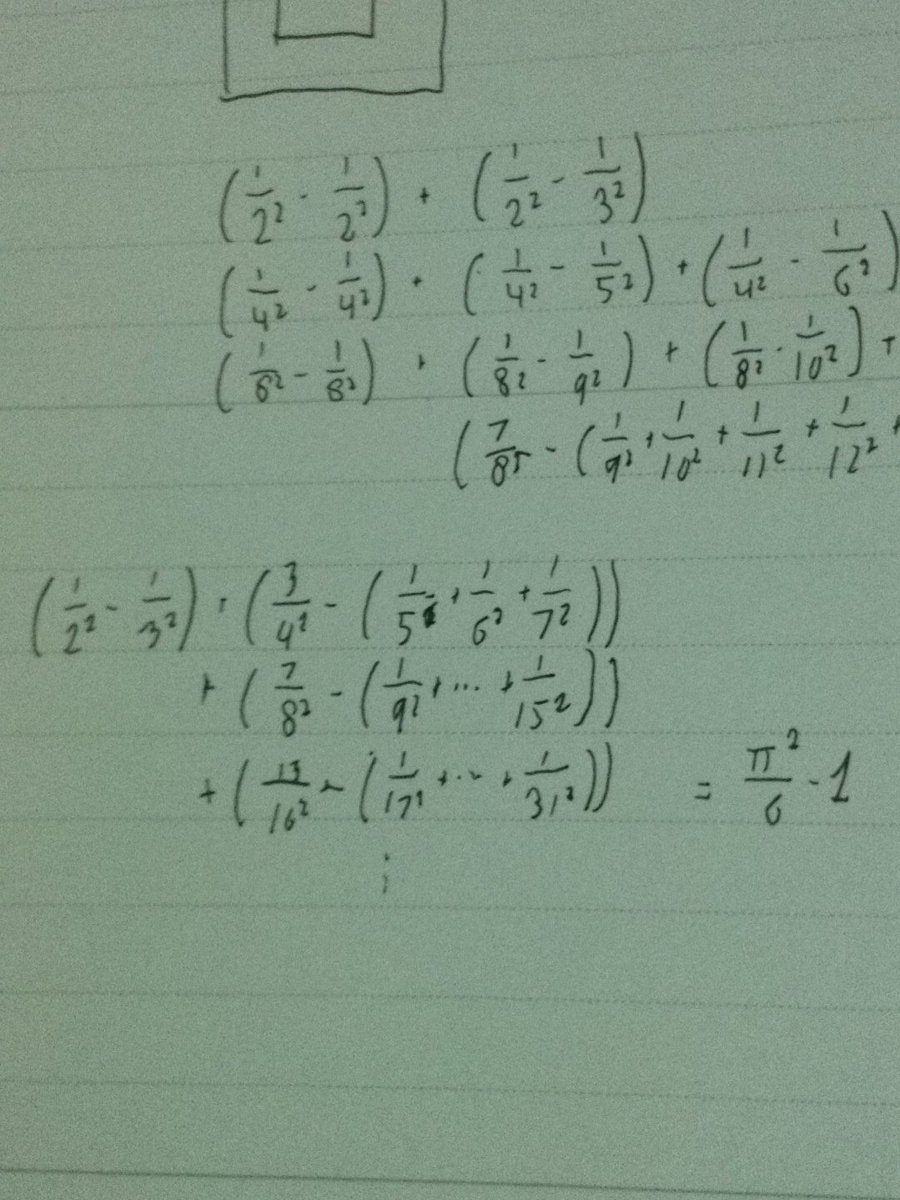 (1/2² - 1/2²) + (1/2² - 1/3²)
(1/4² - 1/4²) + (1/4² - 1/5²) + (1/4² - 1/6²)
(1/8² - 1/8²) + (1/8² - 1/9²) + (1/8² - 1/10²) +
(1/9² + 1/10² + 1/11² + 1/12² +
(1/2² - 1/3²) + (3/4² - (1/5² + 1/6² + 1/7²))
+ (7/8² - (1/9² + ... + 1/15²))
+ (/16² - (1/17² + ... + 1/31²)) = π²/6 - 1
⋮